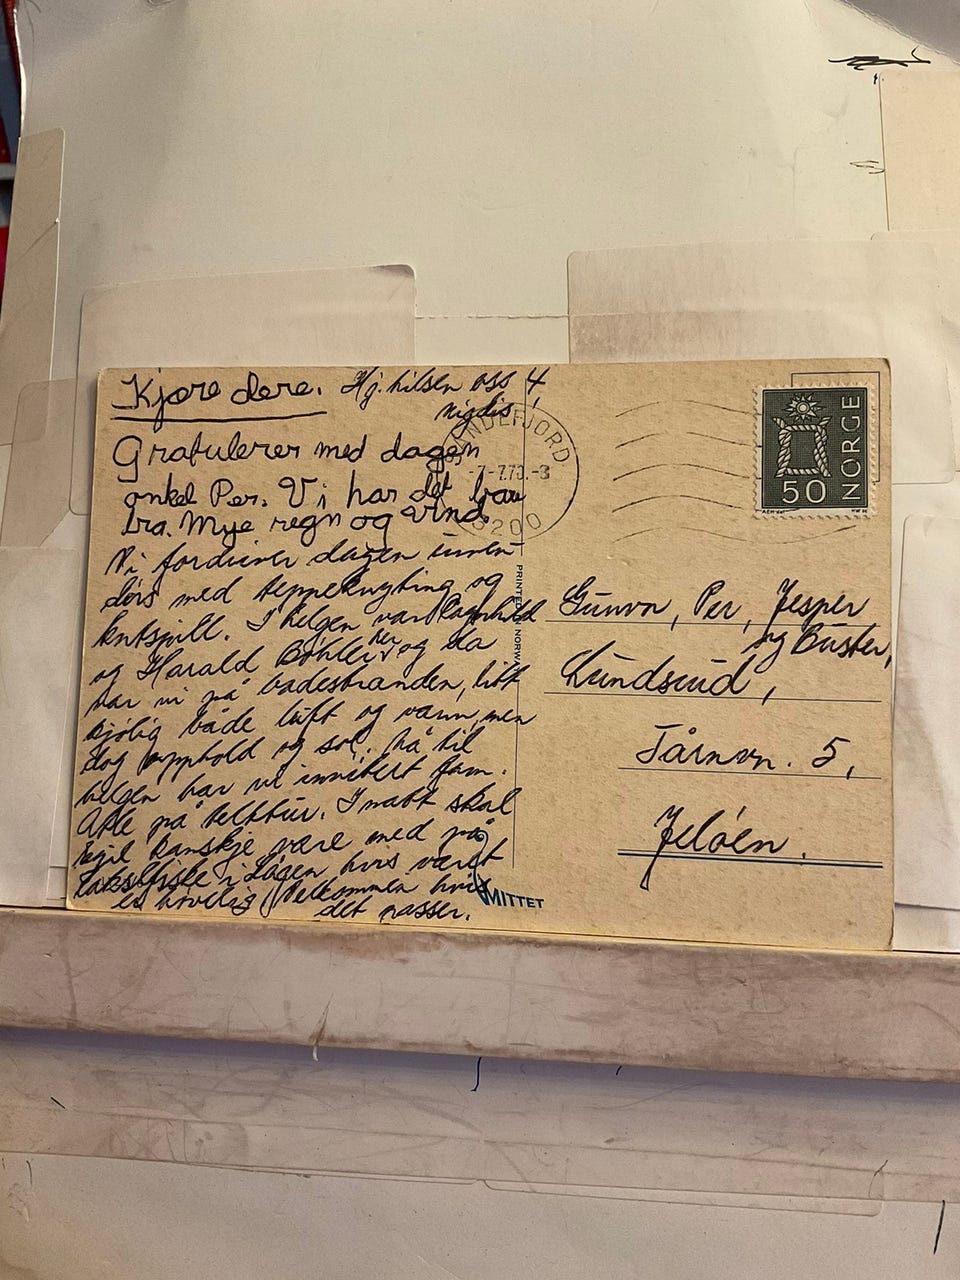 Kjære dere.
Hj. hilsen oss 4
Gratulerer med dagen
onkel Per. Vi har det bare
bra. Mye regn og vind.
Vi fordriver dagen innen-
dørs med teppeknyting og
kortspill. I helgen var Ragnhild
og Harald Bøhler her og da
var vi på badestranden, litt
kjølig både luft og vann, men
dog opphold og sol. Nå til
helgen har vi invitert fam.
på telttur. I natt skal
Egil kanskje være med på
laksefiske i Lågen hvis været
er høvelig. Velkommen hvis
det passer.
SANDEFJORD
-7-7.70.-8
3200
NORGE
50
PRINTED IN NORWAY
Gunvor, Per, Jesper
og Buster,
Lundsrud,
Tårnvn. 5,
Jeløen.
MITTET